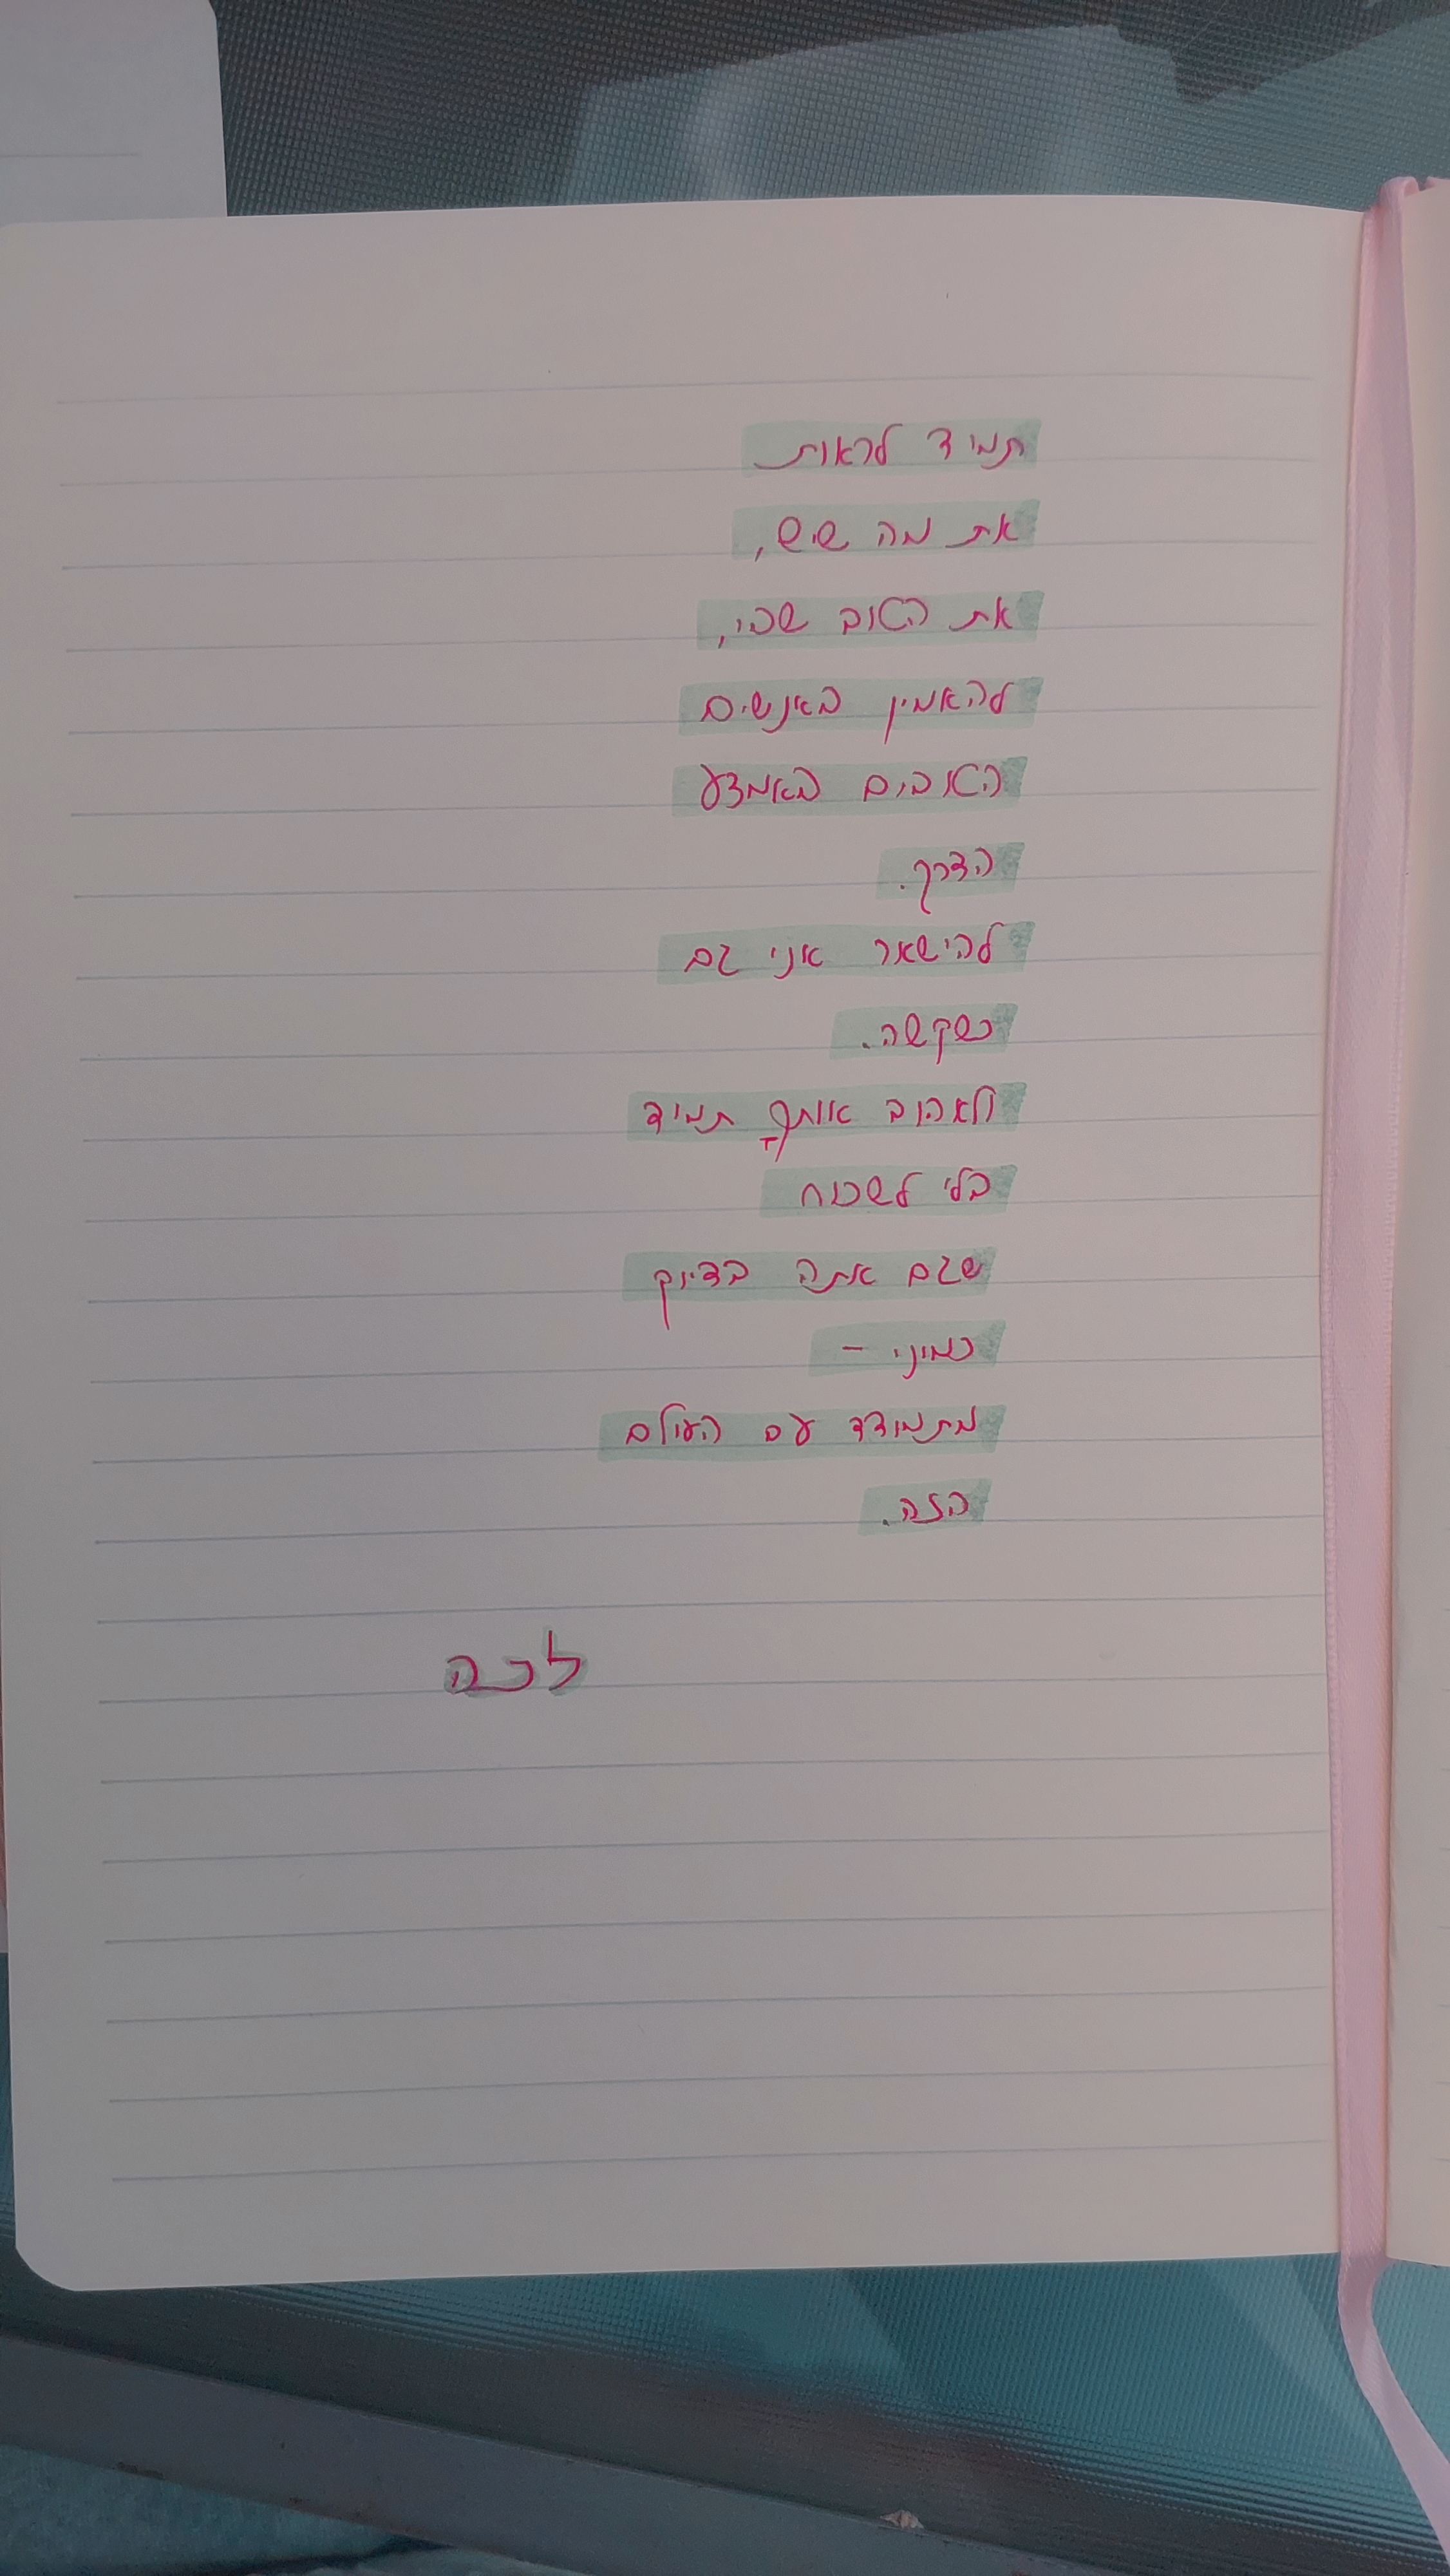 תמיד לראות
את מה שיש,
את הטוב שבי,
להאמין באנשים
הטובים באמצע
הדרך.
להישאר אני גם
כשקשה.
ולאהוב אותךָ תמיד
בלי לשכוח
שגם אתה בדיוק
כמוני -
מתמודד עם העולם
הזה.
ככה